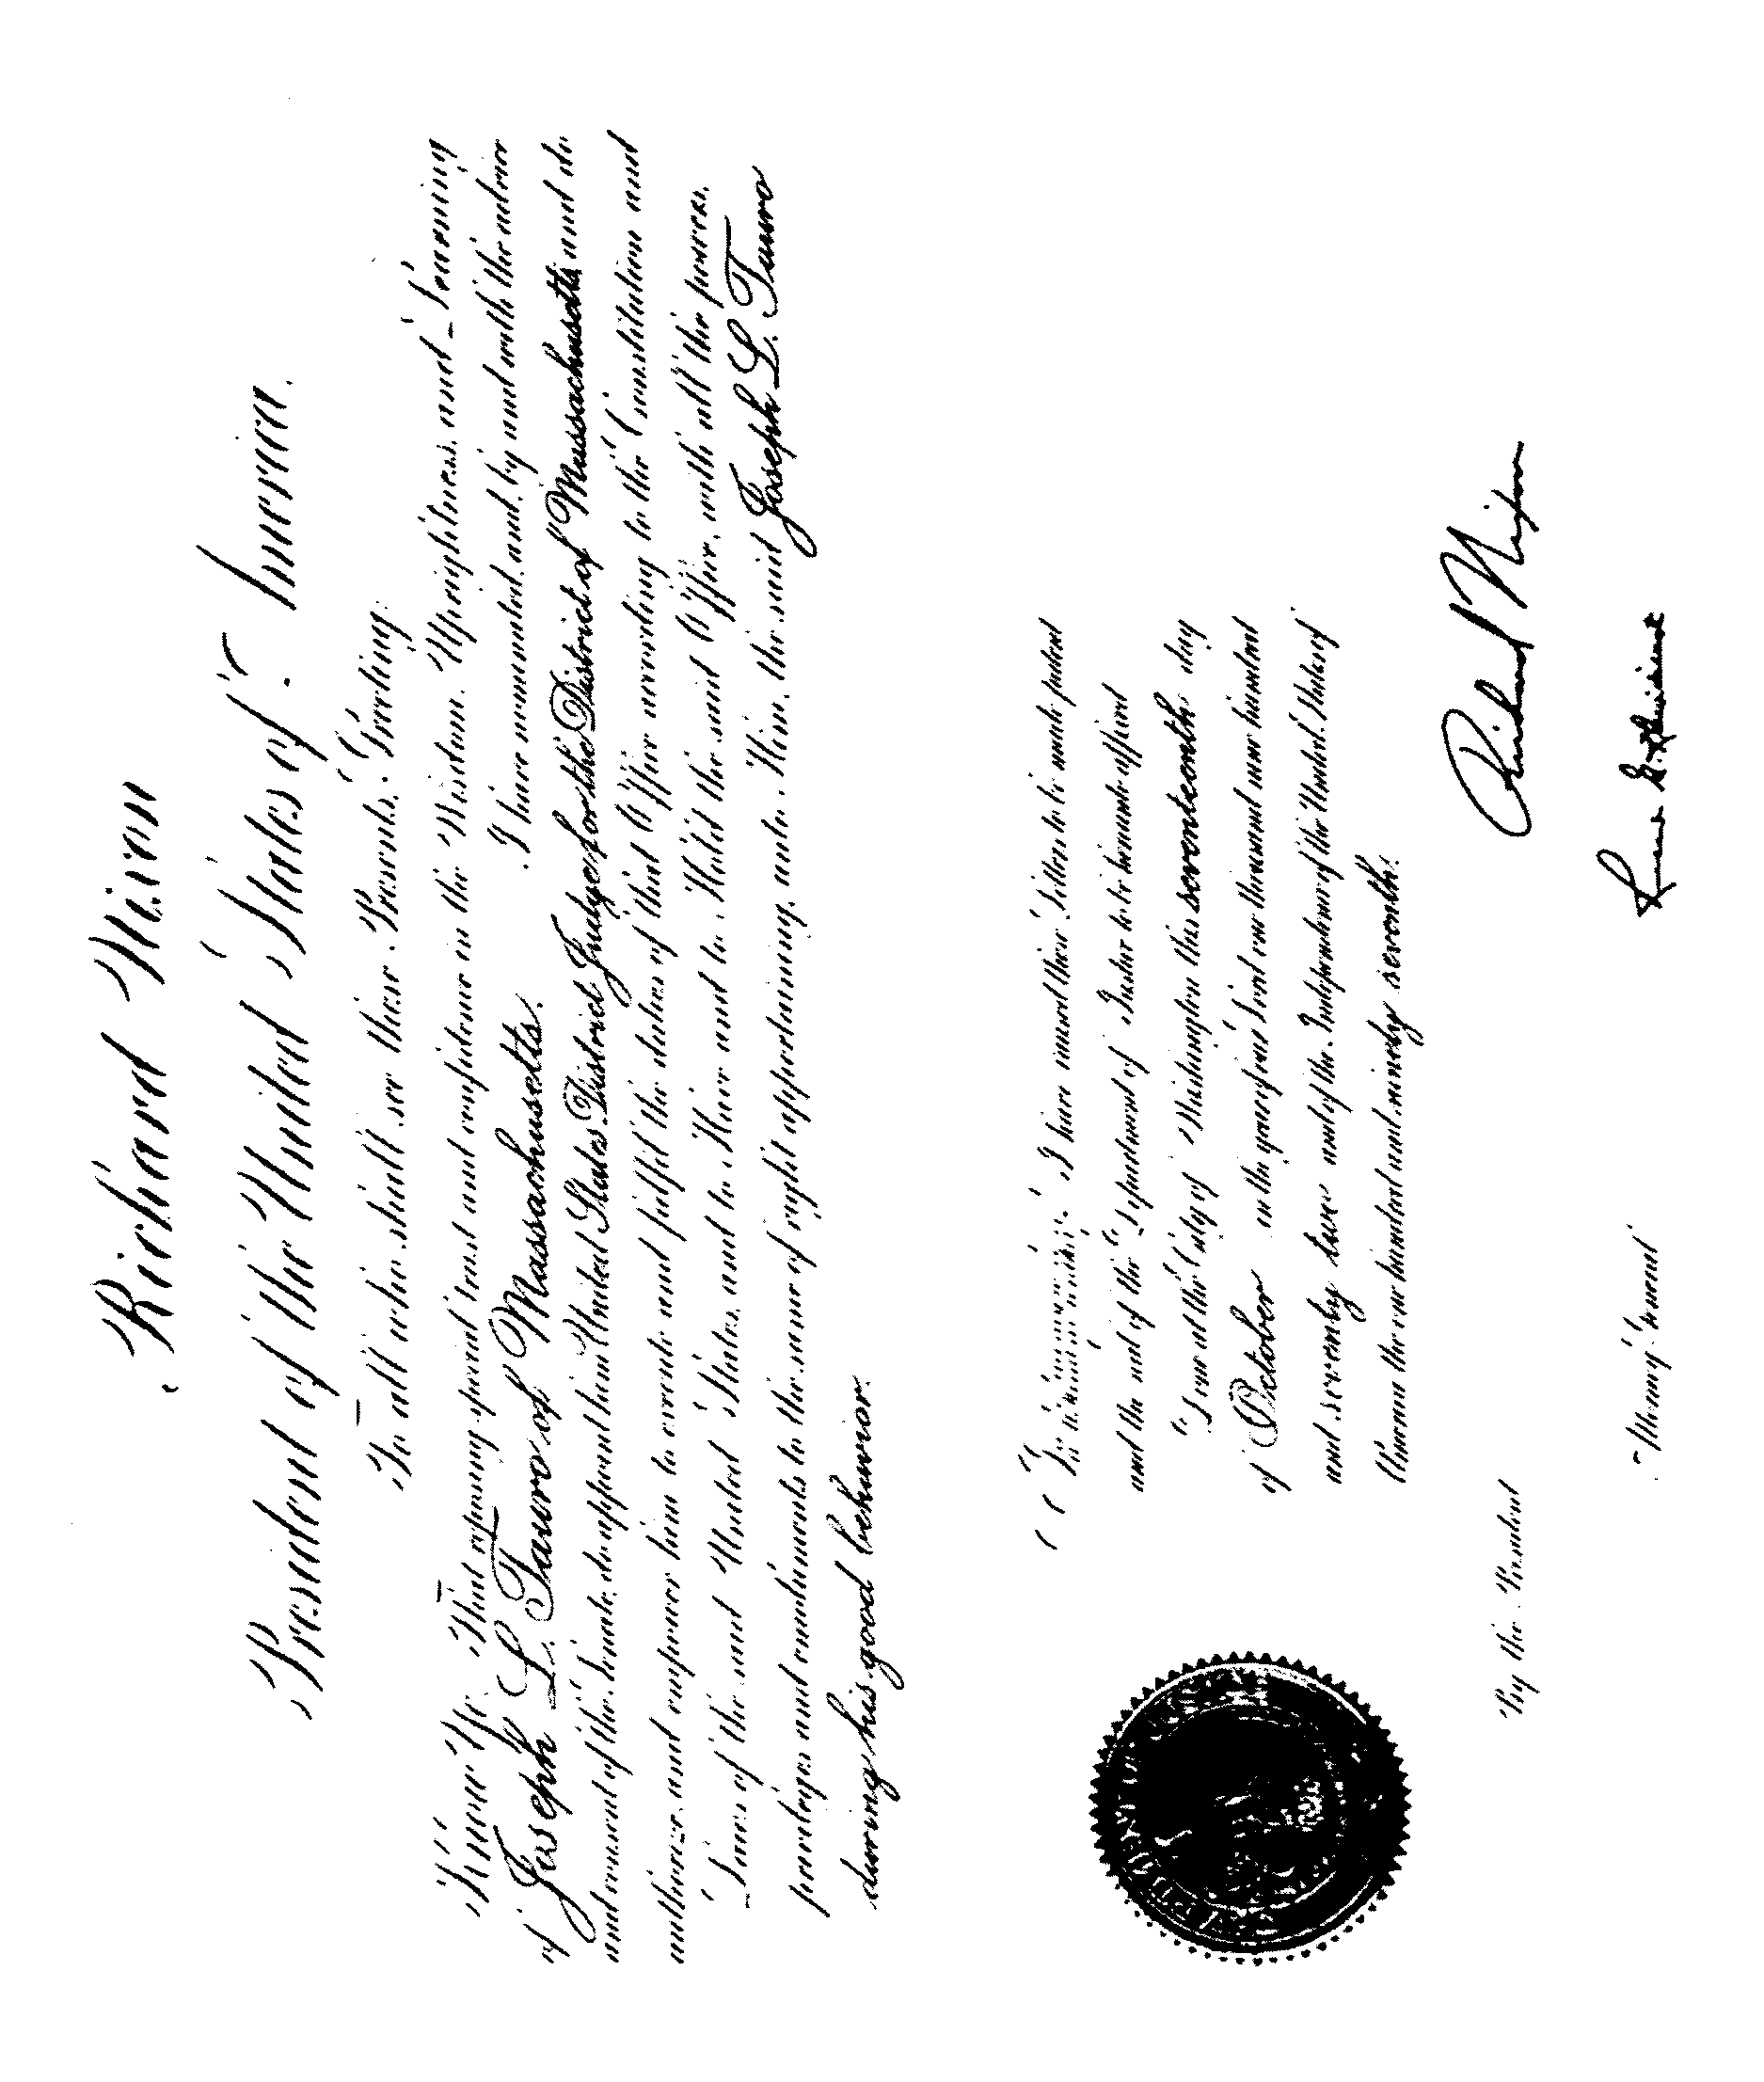 Richard Nixon
President of the United States of America.
To all who shall see these Presents, Greeting:
Know Ye, That reposing special trust and confidence in the Wisdom, Uprightness, and Learning
of Joseph L. Tauro of Massachusetts, I have nominated, and, by and with the advice
and consent of the Senate, do appoint him United States District Judge for the District of Massachusetts and do
authorize and empower him to execute and fulfil the duties of that Office according to the Constitution and
Laws of the said United States, and to Have and to Hold the said Office, with all the powers,
privileges and emoluments to the same of right appertaining, unto Him, the said Joseph L. Tauro
during his good behavior.
I have caused these Letters to be made patent
and the seal of the Department of Justice to be hereunto affixed
Done at the City of Washington this seventeenth day
of October in the year of our Lord one thousand nine hundred
and seventy two and of the Independence of the United States of
America the one hundred and ninety seventh.
Richard Nixon
By the President